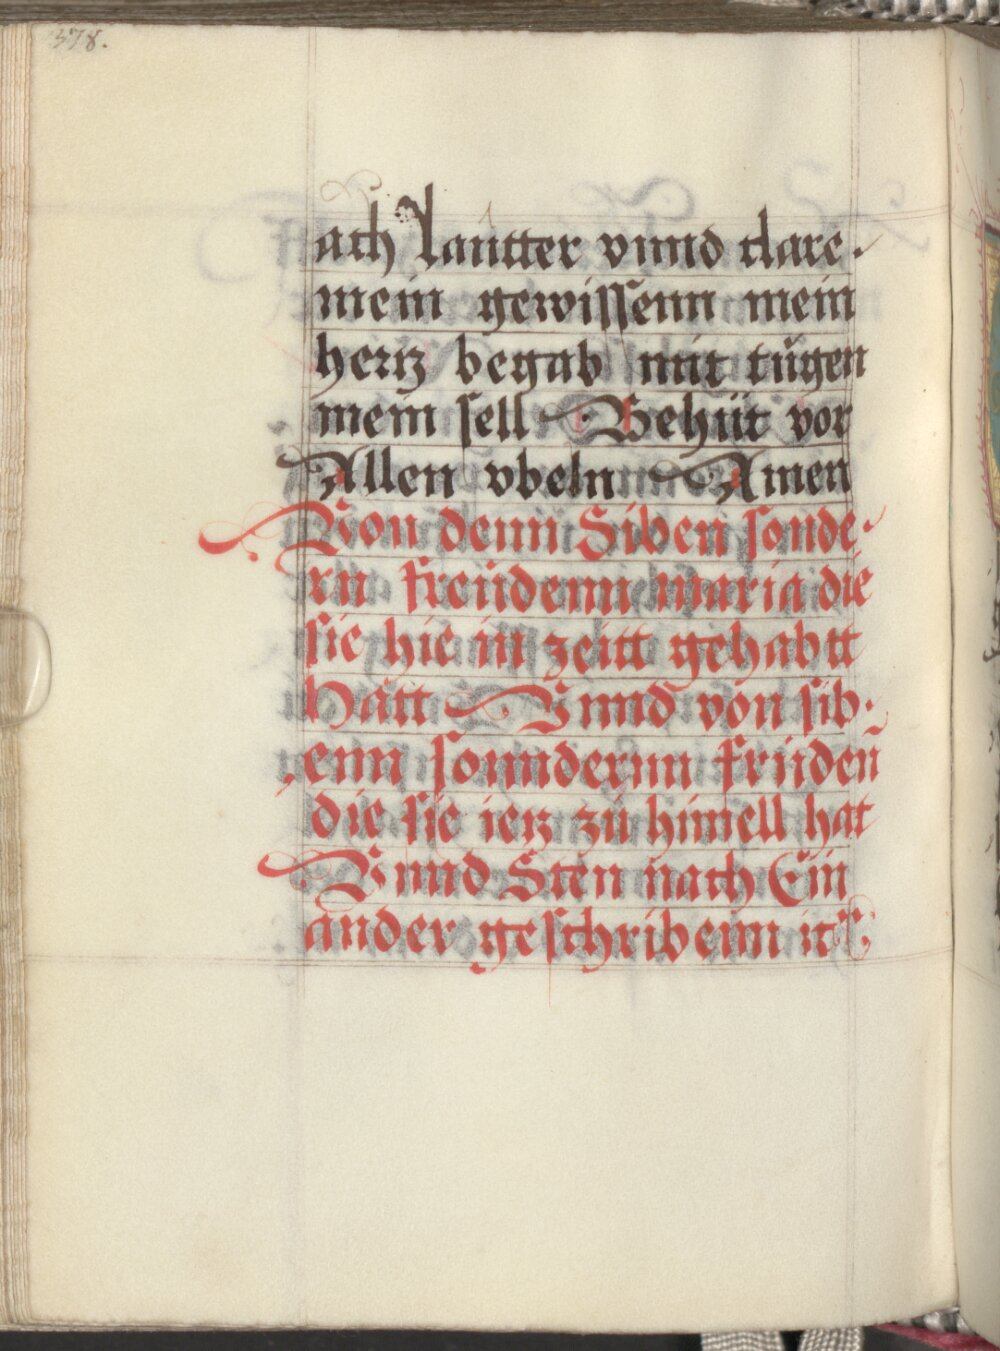 378.
ach lautter vnnd clare.
mein gewissenn mein
hertz begab mit tügen
mein sell Behüt vor
Allen vbeln Amen
Von denn Siben sonde.
rn freüdenn maria die
sie hie in zeitt gehabtt
Hatt Vnnd von sib.
enn sonndernn früden
die sie ietz zü himell hat
Vnnd Sten nach Ein
ander geschribenn